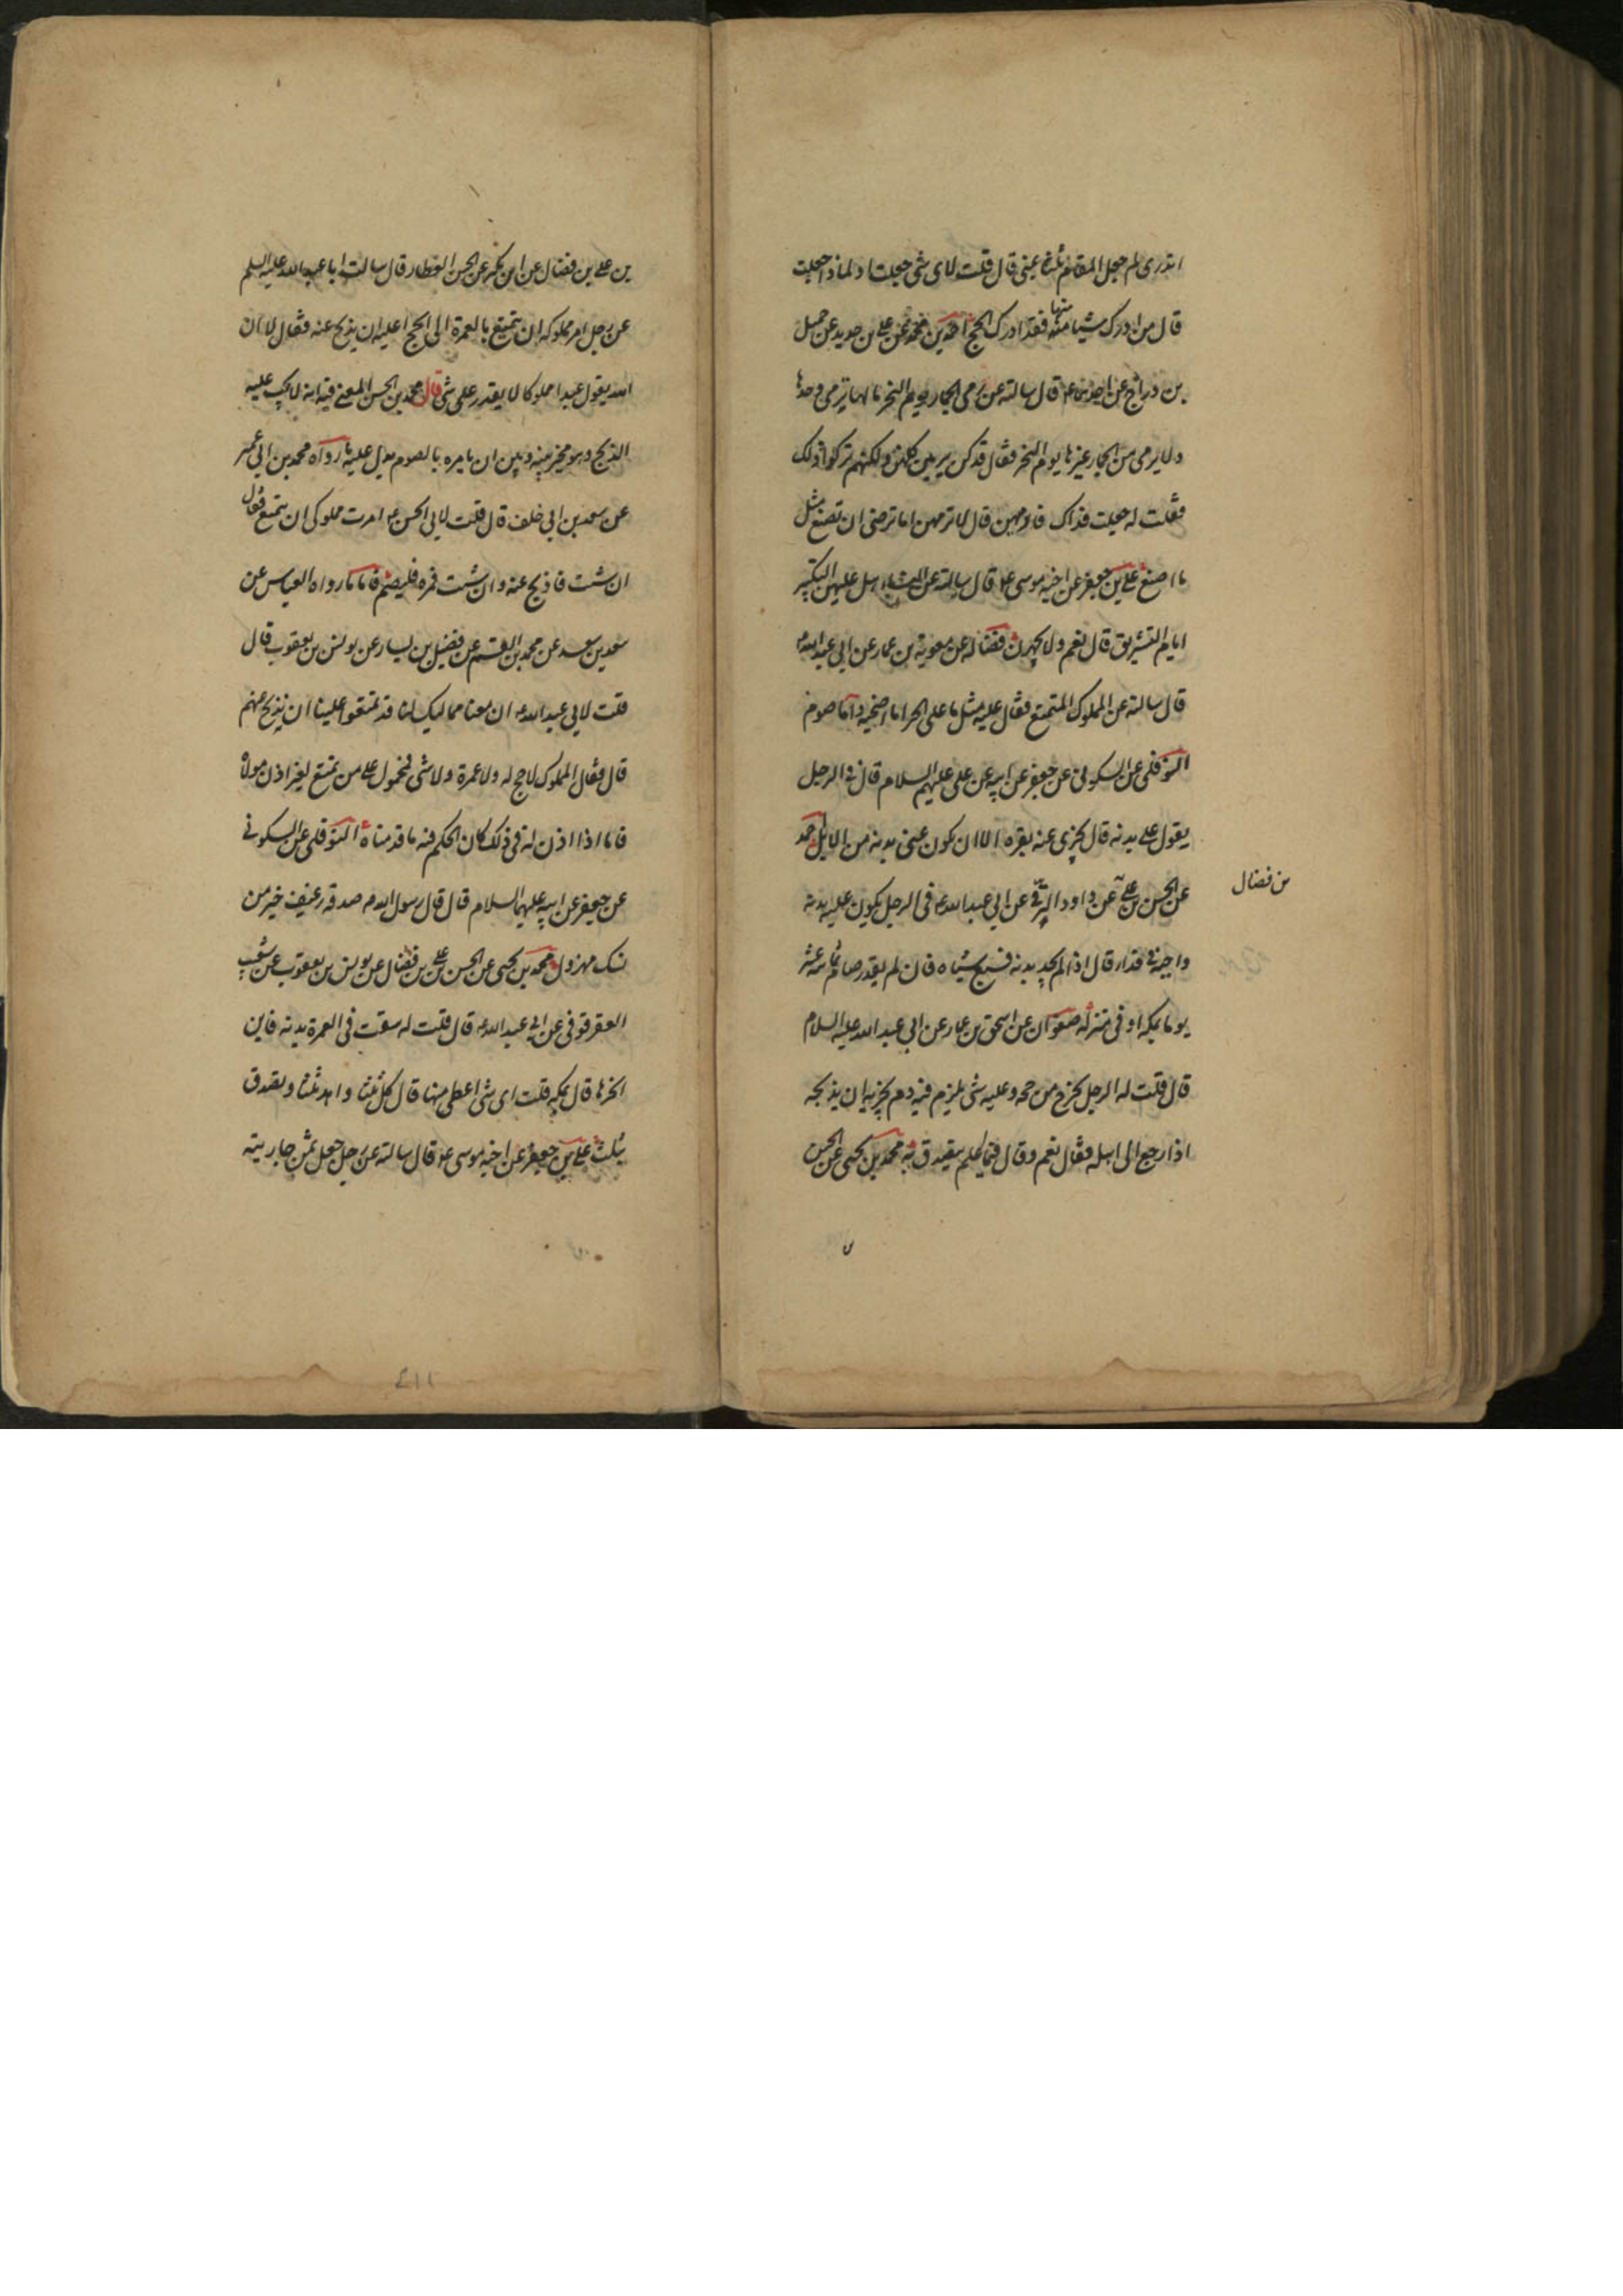 اتدری لم جعل المقام ثلثا بمنی قال قلت لای شی جعلت او لماذا جعلت
قال من ادرک شیئا منها فقد ادرک الحج احمد بن محمد عن علی بن حدید عن جمیل
بن دراج عن احدهما ع قال سالته عن رمی الجمار یوم النحر مالها ترمی وحدها
ولا یرمی من الجمار غیرها یوم النحر فقال قد کن یرمین کلهن ولکنهم ترکوا ذلک
فقلت له جعلت فداک فارمیهن قال لا ترمهن اما ترضی ان تصنع مثل
ما اصنع علی بن جعفر عن اخیه موسی ع قال سالته عن النساء هل علیهن التکبیر
ایام التشریق قال نعم ولا یجهرن فضاله عن معویة بن عمار عن ابی عبد الله ع
قال سالته عن المملوک المتمتع فقال علیه مثل ما علی الحر اما اضحیه واما صوم
النوفلی عن السکونی عن جعفر عن ابیه عن علی علیهم السلام قال فی الرجل
یقول علی بدنه قال یجزی عنه بقره الا ان یکون عنی بدنه من الابل محمد
عن الحسن بن علی عن داود الرقی عن ابی عبد الله ع فی الرجل یکون علیه بدنه
بن فضال
واجبة فی فداء قال اذا لم یجد بدنه فسبع شیاه فان لم یقدر صام ثمانیه عشر
یوما بمکه او فی منزله صفوان عن اسحق بن عمار عن ابی عبد الله علیه السلام
قال قلت له الرجل یخرج من حجه وعلیه شی یلزم فیه دم یجزیه ان یذبحه
اذا رجع الی اهله فقال نعم وقال فیما اعلم یتصدق به محمد بن یحیی عن الحسن
بن علی بن فضال عن ابن بکیر عن الحسن العطار قال سالت ابا عبد الله علیه السلم
عن رجل امر مملوکه ان یتمتع بالعمرة الی الحج اعلیه ان یذبح عنه فقال لا ان
الله یقول عبدا مملوکا لا یقدر علی شی قال محمد بن الحسن المعنی فیه انه لا یجب علیه
الذبح وهو مخیر بینه وبین ان یامره بالصوم یدل علیه ما رواه محمد بن ابی عمیر
عن سعد بن ابی خلف قال قلت لابی الحسن ع امرت مملوکی ان یتمتع فقال
ان شئت فاذبح عنه وان شئت فمره فلیصم فاما ما رواه العباس عن
سعد بن سعد عن محمد بن القسم عن فضیل بن یسار عن یونس بن یعقوب قال
قلت لابی عبد الله ع ان معنا ممالیک لنا قد تمتعوا علینا ان نذبح عنهم
قال فقال المملوک لا حج له ولا عمرة ولا شی فمحمول علی من تمتع بغیر اذن مولاه
فاما اذا اذن له فی ذلک کان الحکم فیه ما قدمناه النوفلی عن السکونی
عن جعفر عن ابیه علیهما السلام قال قال رسول الله ص صدقه رغیف خیر من
نسک مهزول محمد بن یحیی عن الحسن بن علی بن فضال عن یونس بن یعقوب عن شعیب
العقرقوفی عن ابی عبد الله ع قال قلت له سقت فی العمرة بدنه فاین
انحرها قال بمکه قلت ای شی اعطی منها قال کل ثلثا واهد ثلثا وتصدق
بثلث علی بن جعفر عن اخیه موسی ع قال سالته عن رجل جعل ثمن جاریته